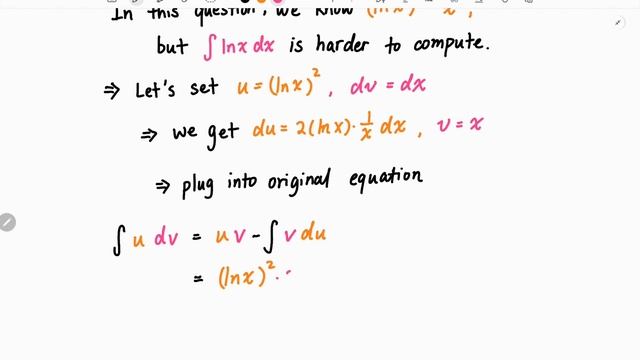 In this question, we know (ln x)
but ∫ ln x dx is harder to compute.
⇒ Let's set u = (ln x)², dv = dx
⇒ we get du = 2(ln x)·1/x dx, v = x
⇒ plug into original equation
∫ u dv = uv - ∫ v du
= (ln x)² ·